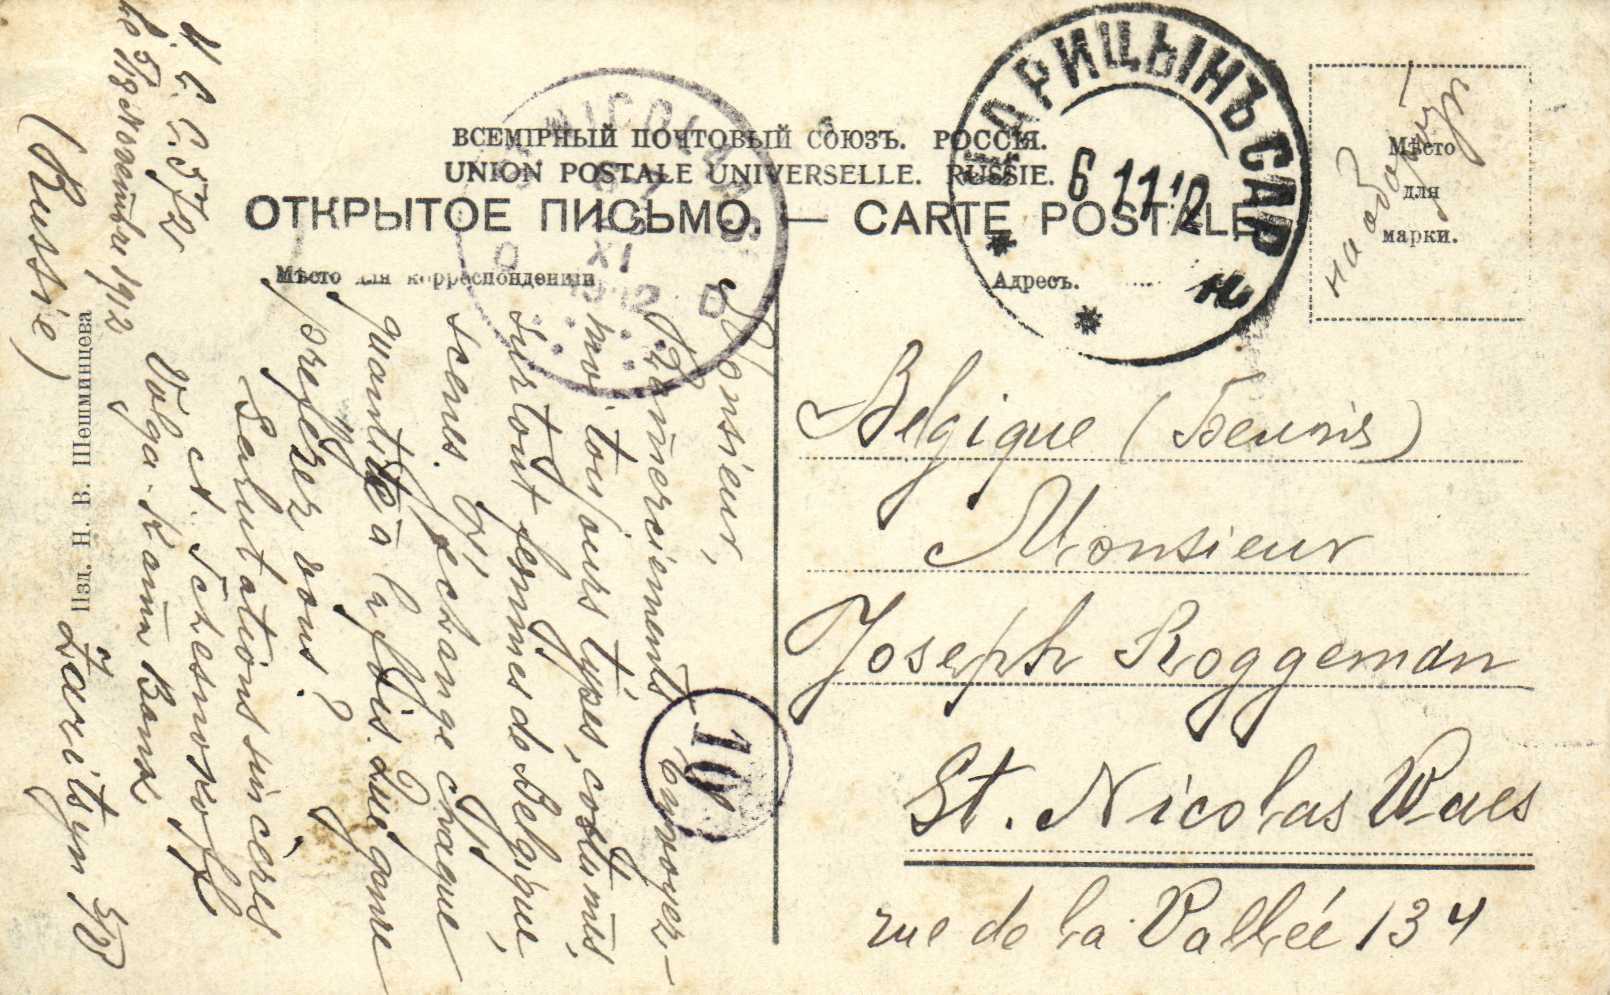 ВСЕМІРНЫЙ ПОЧТОВЫЙ СОЮЗЪ. РОССІЯ.
UNION POSTALE UNIVERSELLE. RUSSIE.
ОТКРЫТОЕ ПИСЬМО. — CARTE POSTALE
Мѣсто для корреспонденціи
Адресъ.
Мѣсто
для
марки.
на обор
ЦАРИЦЫНЪ САР
6 11 12
XI
10
Belgique (
Monsieur
Joseph Roggeman
St. Nicolas Waes
rue de la Vallée 134
Monsieur,
Remerciements Envoyez-
moi toujours types, costumes,
surtout femmes de Belgique,
scenes. J'échange chaque
quantité à la fois. Quel genre
preférez vous?
Salutations sincères
N. Tchesnokoff
Volga-Kama Bank
Zaritsyn
(Russie)
1912
Изд. Н. В. Шешминцева